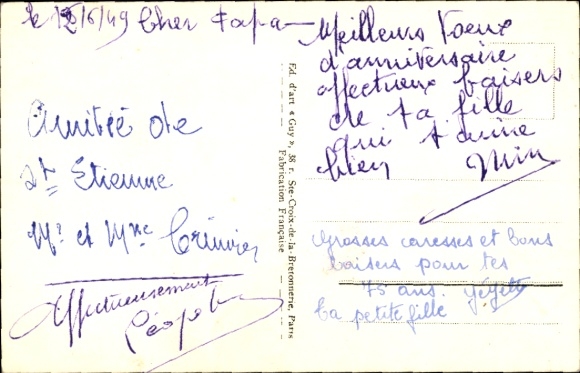 le 12/6/49 Cher Papa
Meilleurs Voeux
d'anniversaire
affectueux baisers
de ta fille
qui t'aime
bien Mim
Amitié de
St Etienne
Mr et Mme
Affectueusement
Ed. d'art « Guy », 38 r. Ste-Croix-de-la-Bretonnerie, Paris
Fabrication Française
Grosses caresses et bons
baisers pour tes
75 ans. Gégette
ta petite fille